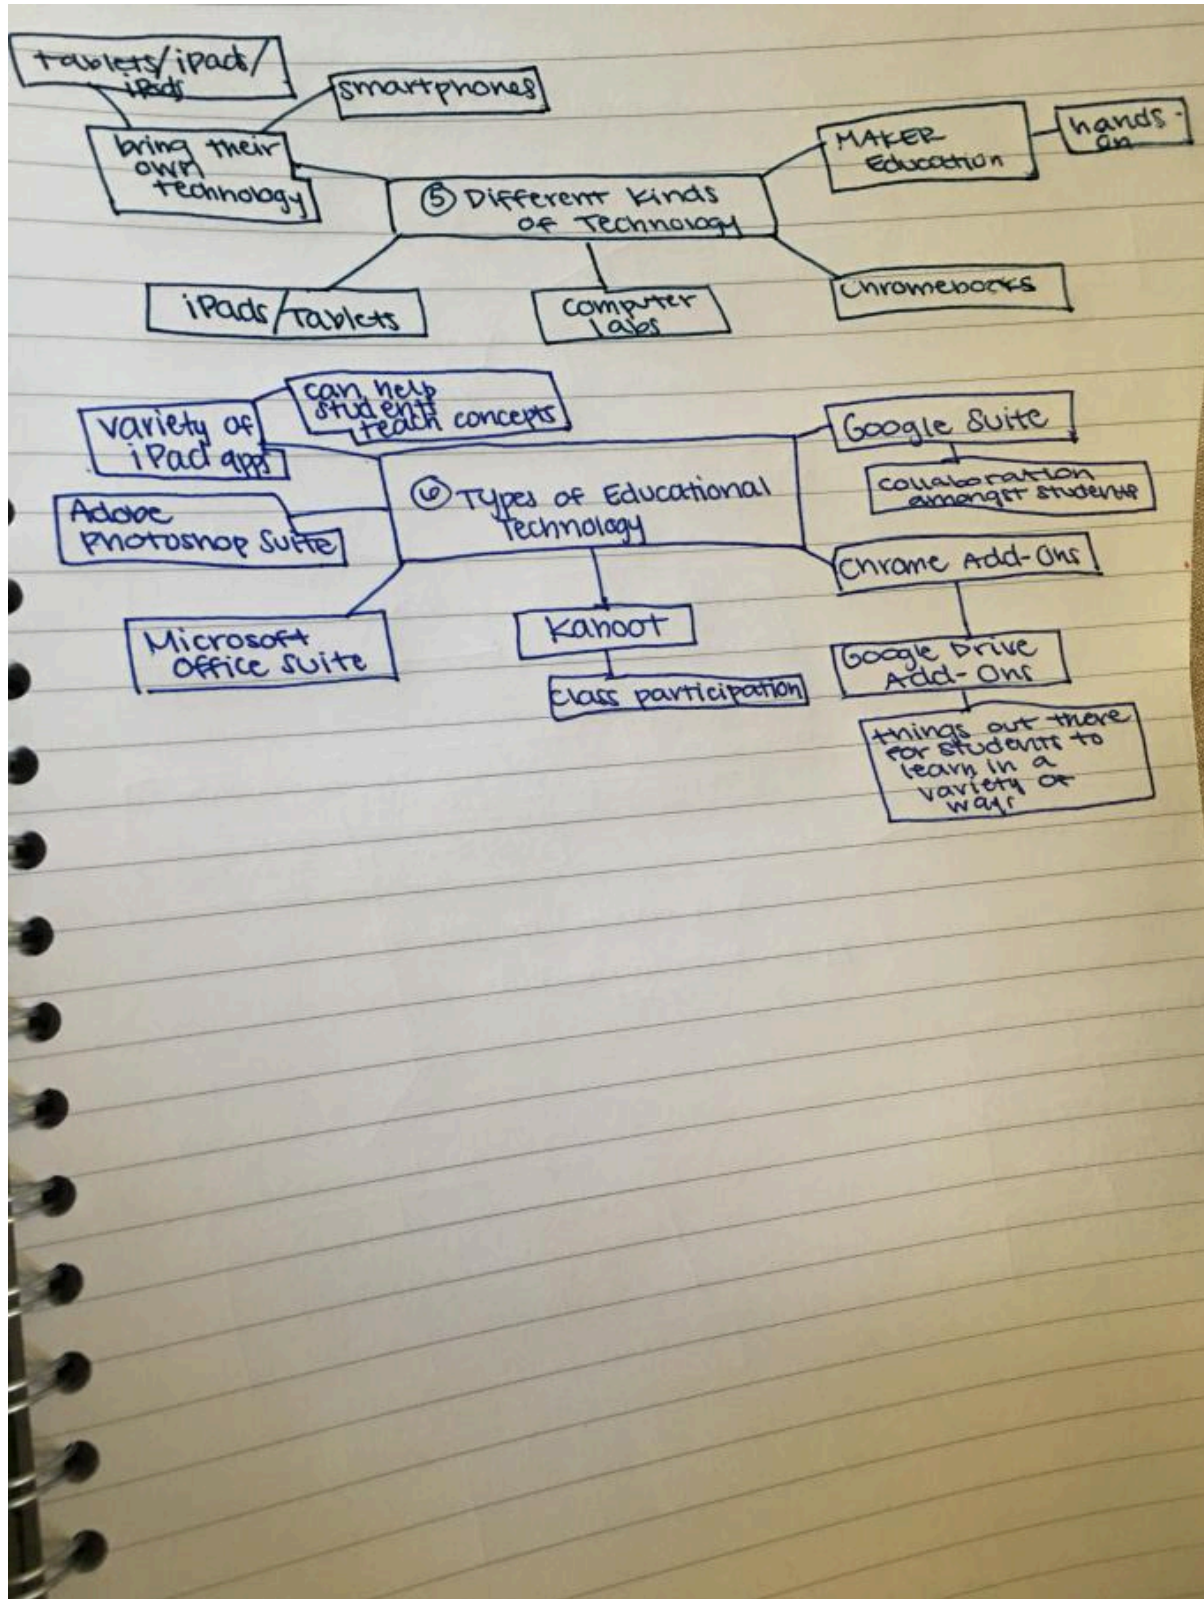 tablets/ipads/
ipads
smartphones
bring their
own
technology
MAKER
Education
hands-
on
⑤ Different Kinds
of Technology
iPads/Tablets
computer
labs
Chromebooks
variety of
iPad apps
can help
students
teach concepts
Google Suite
collaboration
amongst students
⑥ Types of Educational
Technology
Adobe
Photoshop Suite
Chrome Add-Ons
Microsoft
Office Suite
Kahoot
class participation
Google Drive
Add-Ons
things out there
for students to
learn in a
variety of
ways